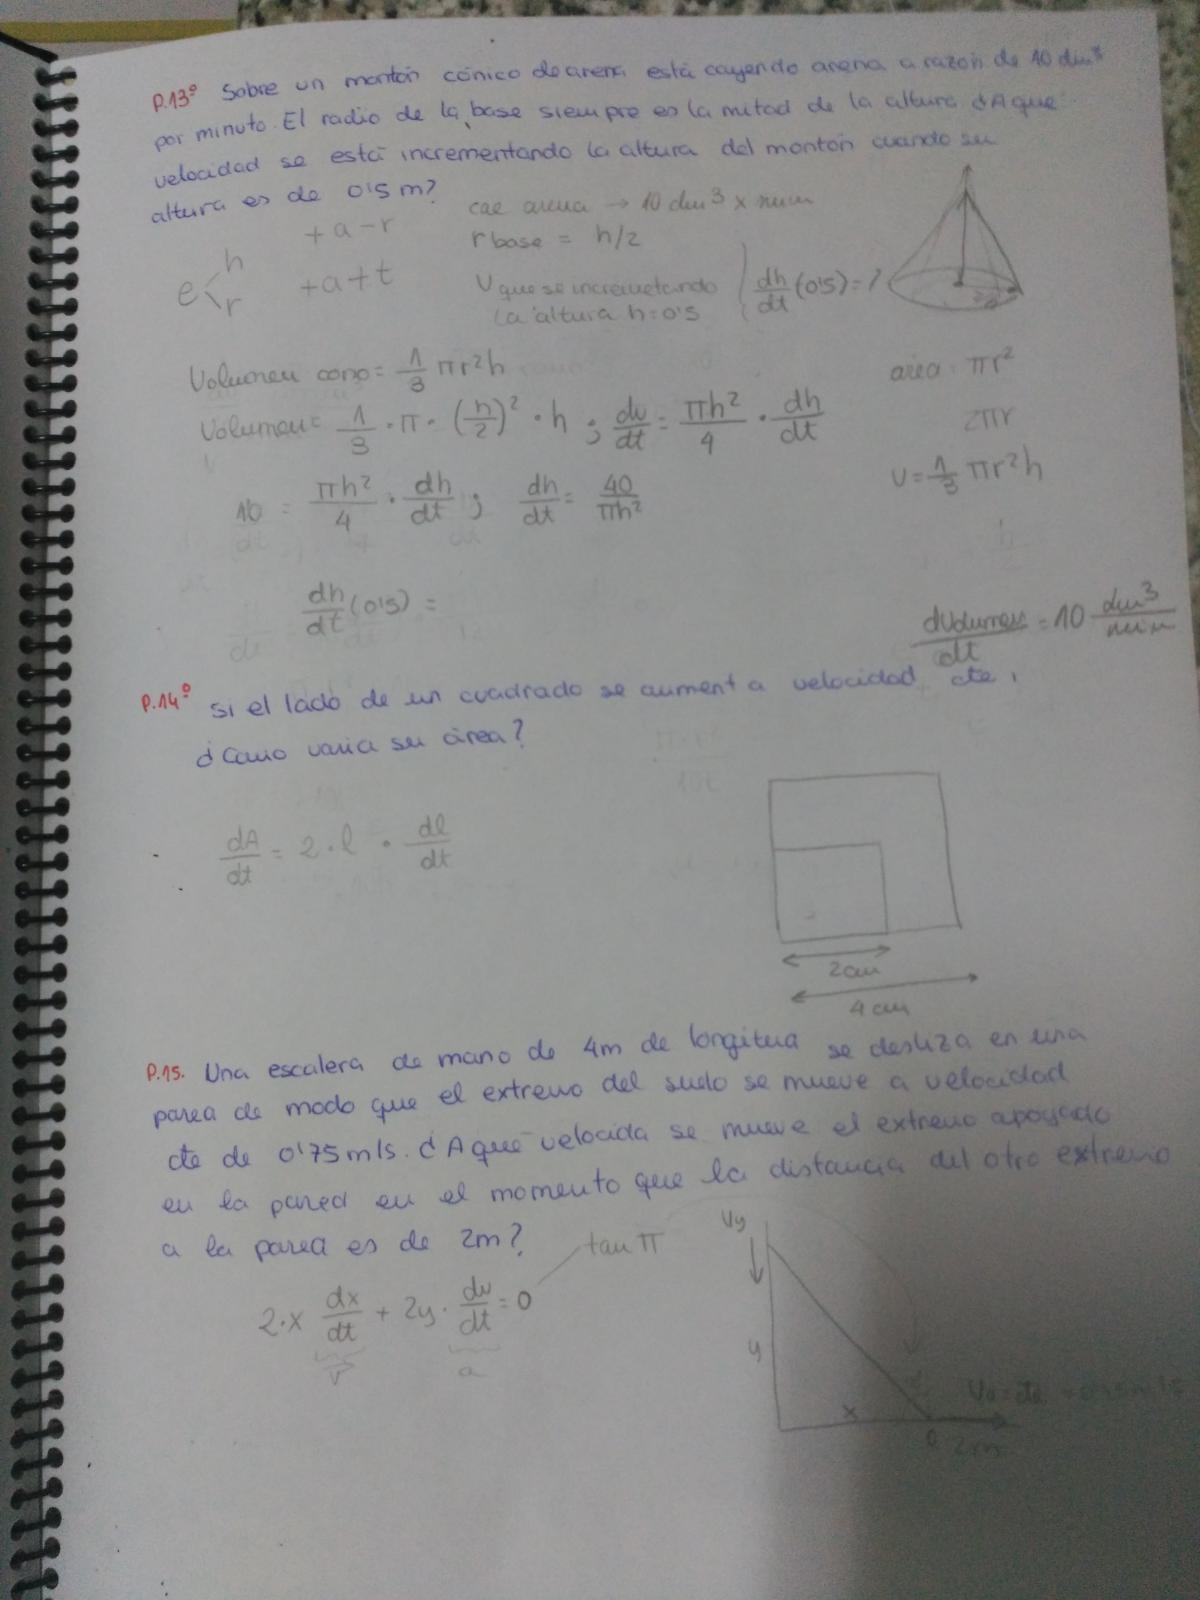 P.13º Sobre un montón cónico de arena está cayendo arena a razón de 10 dm³
por minuto. El radio de la base siempre es la mitad de la altura ¿A que
velocidad se está incrementando la altura del montón cuando su
altura es de 0'5 m?
+a-r
cae arena → 10 dm³ x mm
r base = h/2
e < h r
+a+t
V que se incrementando
la altura h=0'5
dh/dt (0'5) = ?
Volumen cono = 1/3 πr²h
area = πr²
Volumen = 1/3 · π · (h/2)² · h ; dv/dt = πh²/4 · dh/dt
2πr
V = 1/3 πr²h
10 = πh²/4 · dh/dt ; dh/dt = 40/πh²
dh/dt (0'5) =
dVolumen/dt = 10 dm³/min
P.14º Si el lado de un cuadrado se aument a velocidad cte,
¿Como varia su área?
dA/dt = 2·l · dl/dt
2cm
4 cm
P.15. Una escalera de mano de 4m de longitud se desliza en una
pared de modo que el extremo del suelo se mueve a velocidad
cte de 0'75 m/s. ¿A que velocida se mueve el extremo apoyado
en la pared en el momento que la distancia del otro extremo
a la pared es de 2m?
tan π
Vy
2·x dx/dt + 2y · dv/dt = 0
v
a
y
x
2m